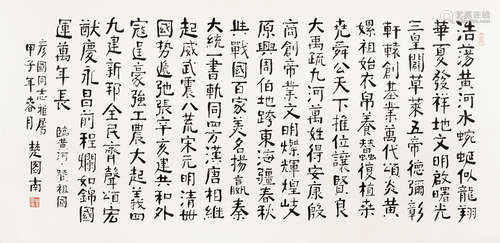 浩蕩黃河水蜿蜒似龍翔
華夏發祥地文明啟曙光
三皇開草萊五帝德彌彰
軒轅創基業萬代頌炎黃
嫘祖始衣帛養蠶復植桑
堯舜公天下推位讓賢良
大禹疏九河萬姓得安康殷
商創帝業文明燦輝煌岐
原興周伯地跨東海疆春秋
與戰國百家美名揚嬴秦
大統一書軌同四方漢唐相
起威武震八荒宋元明清
國勢遞弛張辛亥建共和外
寇逞豪強工農大起義四
九建新邦全民齊聲頌宏
猷慶永昌前程爛如錦國
運萬年長 臨黃河 贊祖國
彥國同志雅屬
甲子年春月 楚圖南